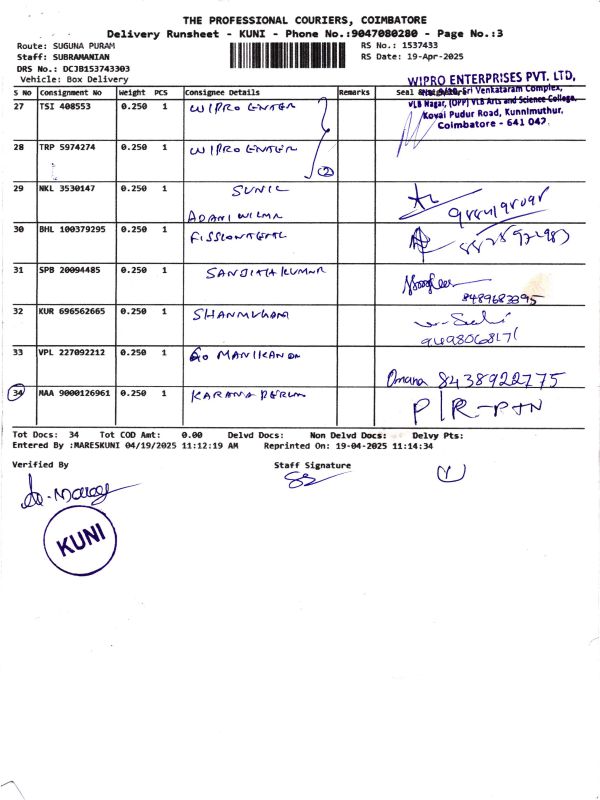 THE PROFESSIONAL COURIERS, COIMBATORE
Delivery Runsheet - KUNI - Phone No.:9047080280 - Page No.:3
Route: SUGUNA PURAM RS No.: 1537433
Staff: SUBRAMANIAN RS Date: 19-Apr-2025
DRS No.: DCJB153743303
Vehicle: Box Delivery
WIPRO ENTERPRISES PVT. LTD,
Sri Venkataram Complex,
VLB Nagar, (OPP) VLB Arts and Science College,
Kovai Pudur Road, Kunnimuthur,
Coimbatore - 641 042.
S No Consignment No Weight PCS Consignee Details Remarks Seal &
27 TSI 408553 0.250 1 WIPRO ENTER
28 TRP 5974274 0.250 1 WIPRO ENTER
2
29 NKL 3530147 0.250 1 SUNIL
ADANI WILMA
30 BHL 100379295 0.250 1
31 SPB 20094485 0.250 1 SANJITH KUMAR
8489683395
32 KUR 696562665 0.250 1 SHANMUGAM
33 VPL 227092212 0.250 1 GO MANIKANDA
Omana 8438922775
34 MAA 9000126961 0.250 1 KARANA PERUM
Tot Docs: 34 Tot COD Amt: 0.00 Delvd Docs: Non Delvd Docs: Delvy Pts:
Entered By :MARESKUNI 04/19/2025 11:12:19 AM Reprinted On: 19-04-2025 11:14:34
Verified By Staff Signature
KUNI